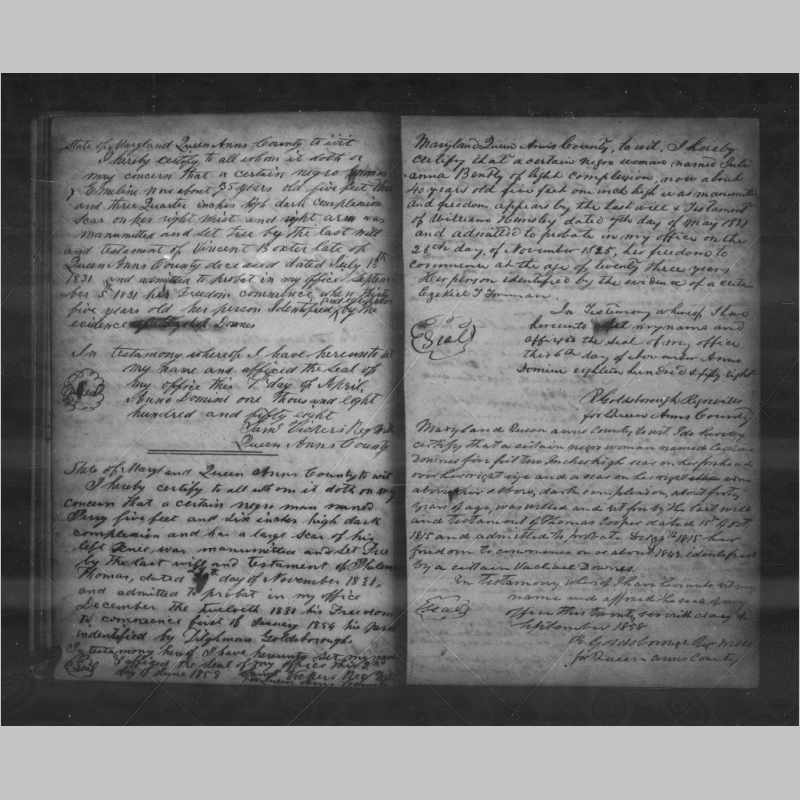 State of Maryland Queen Anns County to wit
I hereby certify to all whom it doth or
may concern that a certain negro
Emeline now about 35 years old five feet
and three Quarter inches high dark complexion
Scar on her right wrist and right arm was
manumitted and set free by the last will
and testament of Vincent Boxter late of
Queen Anns County deceased dated July 13th
1831 and admitted to probat in my office Septem
ber 5 1831 her Freedom comencince when thirty
five years old her person Identified by the
evidence Downes
In testimony whereof I have hereunto
my name and affixed the seal of
my office this 7 day of April,
Anno Domini one thousand eight
hundred and fifty eight
Saml Vickers Reg Wills
Queen Anns County
State of Maryland Queen Anns County to wit
I hereby certify to all whom it doth or my
concern that a certain negro man named
Perry five feet and six inches high dark
complexion and has a large Scar of his
left Knee, was manumitted and set Free
by the last will and testament of
Thomas, dated day of November 1831,
and admitted to probat in my office
December the twelvth 1831 his Freedom
to comencence first of January 1854 his
indentified by Tilghman Goldsborough
In testamony herof I have hereunto set my name
& affixed the seal of my office this 2nd
Seal
day of June 1858 Saml Vickers Reg
for Queen Anns County
Maryland Queen Anns County, to wit, I hereby
certify that a certain negro woman named Juli
anna Bently of light complexion, now about
40 years old five feet one inch high was manumitted
and freedom appears by the last will & Testament
of William Hemsley dated 7th day of May 1821
and admitted to probate in my office on the
28th day of November 1825, her freedom to
commence at the age of twenty three years
Her person identified by the evidence of a certain
Ezekiel T
In Testimony whereof I have
hereunto set my name and
Seal
affixed the seal of my office
this 6th day of November Anno
Domini eighteen hundred & fifty eight
R Goldsborough Reg wills
for Queen Anns County
Maryland Queen anns County to wit I do hereby
certify that a certain negro woman named
Downes five feet two Inches high scar on her forehead
over her right eye and a scar on her right
above her elbow, dark complexion, about forty
years of age, was willed and set free by the last will
and testament of Thomas Cooper dated 15th
1815 and admitted to probate 1815 her
freedom to commence on or about 1842 identified
by a certain Vachael Downes.
In testimony whereof I have hereunto set my
name and affixed the seal of my
Seal
office this twenty seventh day of
September 1858
R Goldsborough Reg Wills
for Queen anns County